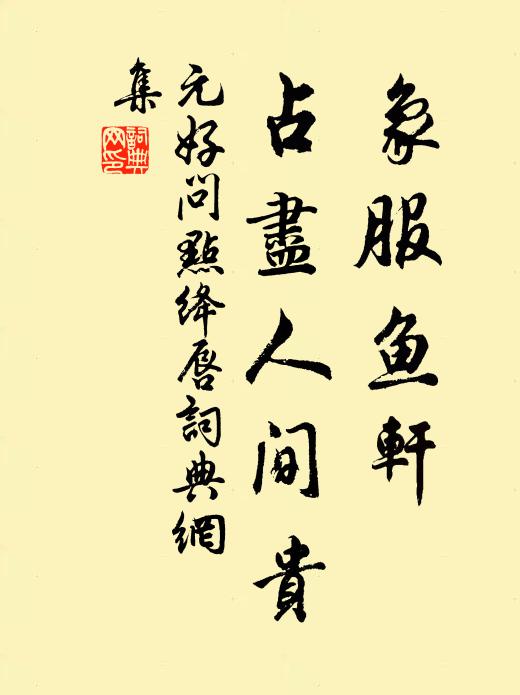 象服魚軒
占盡人間貴
元好問點絳唇詞典網
集
詞典
网印